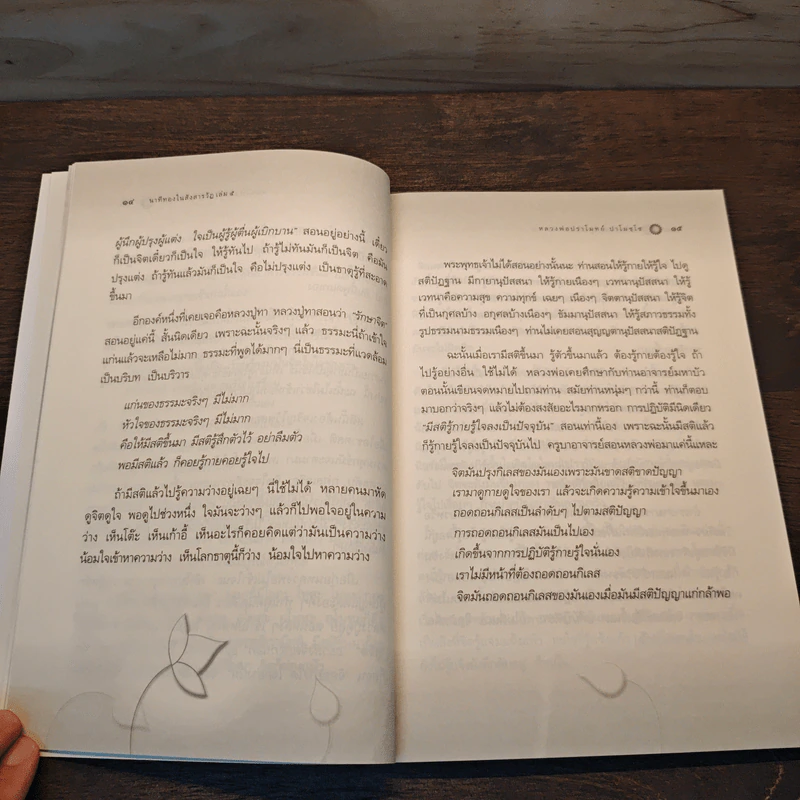 ๑๔ นาทีทองในสังสารวัฏ เล่ม ๕
ผู้นึกผู้ปรุงผู้แต่ง ใจเป็นผู้รู้ผู้ตื่นผู้เบิกบาน" สอนอยู่อย่างนี้ เดี๋ยว
ก็เป็นจิตเดี๋ยวก็เป็นใจ ให้รู้ทันไป ถ้ารู้ไม่ทันมันก็เป็นจิต คือมัน
ปรุงแต่ง ถ้ารู้ทันแล้วมันก็เป็นใจ คือไม่ปรุงแต่ง เป็นธาตุรู้ที่สะอาด
ขึ้นมา
อีกองค์หนึ่งที่เคยเจอคือหลวงปู่ทา หลวงปู่ทาสอนว่า "รักษาจิต"
สอนอยู่แค่นี้ สั้นนิดเดียว เพราะฉะนั้นจริงๆ แล้ว ธรรมะนี่ถ้าเข้าใจ
แก่นแล้วจะเหลือไม่มาก ธรรมะที่พูดได้มากๆ นี่เป็นธรรมะที่แวดล้อม
เป็นบริบท เป็นบริวาร
แก่นของธรรมะจริงๆ มีไม่มาก
หัวใจของธรรมะจริงๆ มีไม่มาก
คือให้มีสติขึ้นมา มีสติรู้สึกตัวไว้ อย่าลืมตัว
พอมีสติแล้ว ก็คอยรู้กายคอยรู้ใจไป
ถ้ามีสติแล้วไปรู้ความว่างอยู่เฉยๆ นี่ใช้ไม่ได้ หลายคนมาหัด
ดูจิตดูใจ พอดูไปช่วงหนึ่ง ใจมันจะว่างๆ แล้วก็ไปพอใจอยู่ในความ
ว่าง เห็นโต๊ะ เห็นเก้าอี้ เห็นอะไรก็คอยคิดแต่ว่ามันเป็นความว่าง
น้อมใจเข้าหาความว่าง เห็นโลกธาตุนี้ก็ว่าง น้อมใจไปหาความว่าง
หลวงพ่อปราโมทย์ ปาโมชฺโช ๑๕
พระพุทธเจ้าไม่ได้สอนอย่างนั้นนะ ท่านสอนให้รู้กายให้รู้ใจ ไปดู
สติปัฏฐาน มีกายานุปัสสนา ให้รู้กายเนืองๆ เวทนานุปัสสนา ให้รู้
เวทนาคือความสุข ความทุกข์ เฉยๆ เนืองๆ จิตตานุปัสสนา ให้รู้จิต
ที่เป็นกุศลบ้าง อกุศลบ้างเนืองๆ ธัมมานุปัสสนา ให้รู้สภาวธรรมทั้ง
รูปธรรมนามธรรมเนืองๆ ท่านไม่เคยสอนสุญญตานุปัสสนาสติปัฏฐาน
ฉะนั้นเมื่อเรามีสติขึ้นมา รู้ตัวขึ้นมาแล้ว ต้องรู้กายต้องรู้ใจ ถ้า
ไปรู้อย่างอื่น ใช้ไม่ได้ หลวงพ่อเคยศึกษากับท่านอาจารย์มหาบัว
ตอนนั้นเขียนจดหมายไปถามท่าน สมัยท่านหนุ่มๆ กว่านี้ ท่านก็ตอบ
มาบอกว่าจริงๆ แล้วไม่ต้องสงสัยอะไรมากหรอก การปฏิบัติมีนิดเดียว
"มีสติรู้กายรู้ใจลงเป็นปัจจุบัน" สอนเท่านี้เอง เพราะฉะนั้นมีสติแล้ว
ก็รู้กายรู้ใจลงเป็นปัจจุบันไป ครูบาอาจารย์สอนหลวงพ่อมาแค่นี้แหละ
จิตมันปรุงกิเลสของมันเองเพราะมันขาดสติขาดปัญญา
เรามาดูกายดูใจของเรา แล้วจะเกิดความรู้ความเข้าใจขึ้นมาเอง
ถอดถอนกิเลสเป็นลำดับๆ ไปตามสติปัญญา
การถอดถอนกิเลสมันเป็นไปเอง
เกิดขึ้นจากการปฏิบัติรู้กายรู้ใจนั่นเอง
เราไม่มีหน้าที่ต้องถอดถอนกิเลส
จิตมันถอดถอนกิเลสของมันเองเมื่อมันมีสติปัญญาแก่กล้าพอ